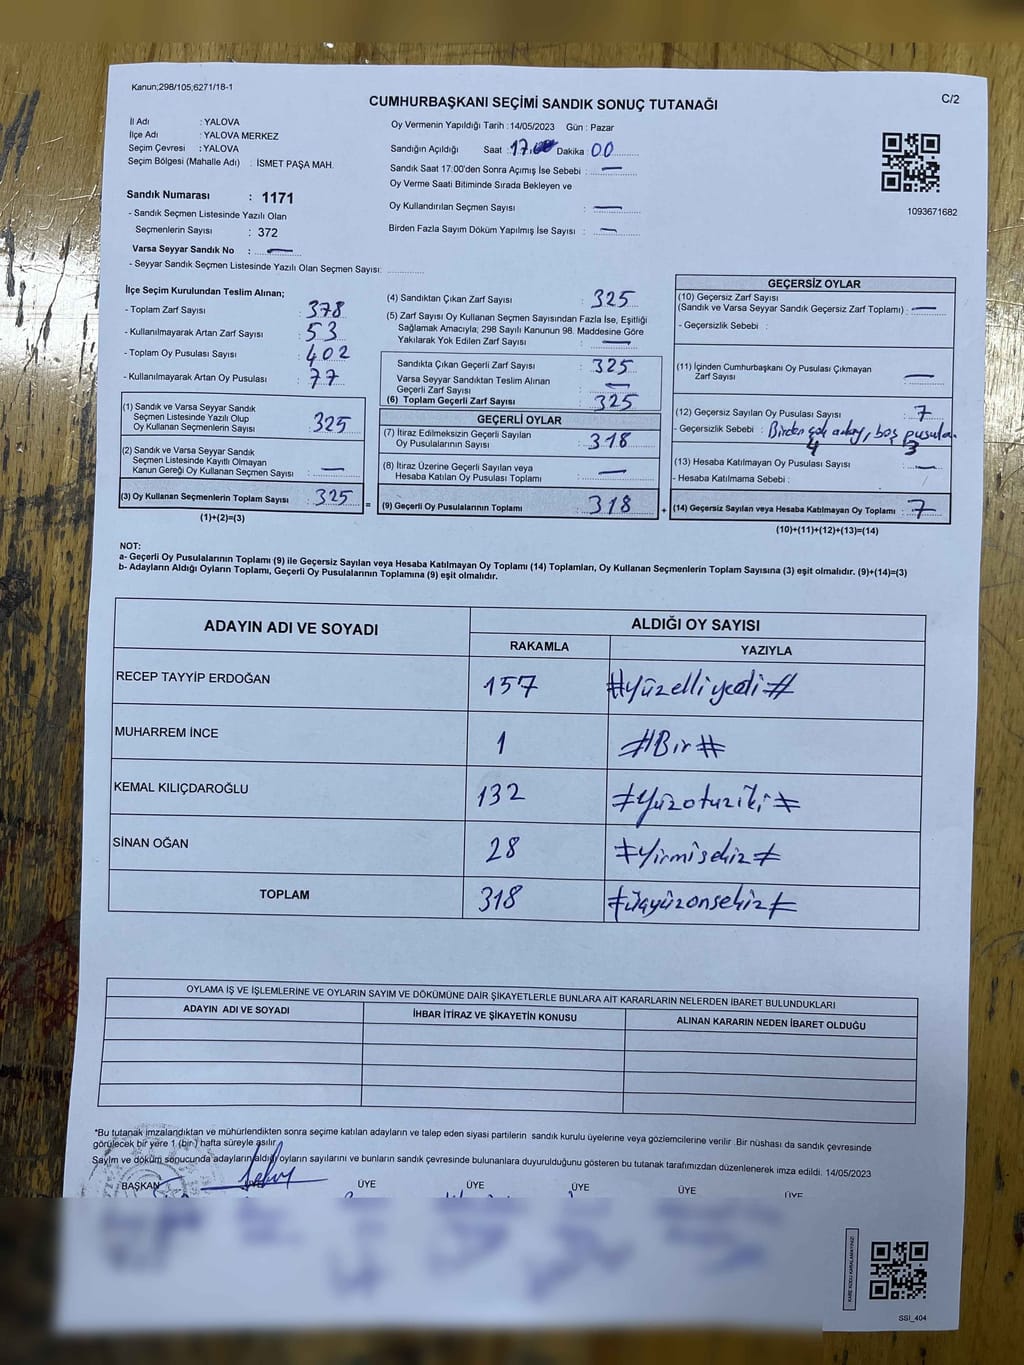 Kanun;298/105;6271/18-1
C/2
CUMHURBAŞKANI SEÇİMİ SANDIK SONUÇ TUTANAĞI
İl Adı : YALOVA
İlçe Adı : YALOVA MERKEZ
Seçim Çevresi : YALOVA
Seçim Bölgesi (Mahalle Adı) : İSMET PAŞA MAH.
Sandık Numarası : 1171
- Sandık Seçmen Listesinde Yazılı Olan
Seçmenlerin Sayısı : 372
Varsa Seyyar Sandık No : —
- Seyyar Sandık Seçmen Listesinde Yazılı Olan Seçmen Sayısı:
Oy Vermenin Yapıldığı Tarih : 14/05/2023 Gün : Pazar
Sandığın Açıldığı Saat : 17.00 Dakika : 00
Sandık Saat 17:00'den Sonra Açımış İse Sebebi : —
Oy Verme Saati Bitiminde Sırada Bekleyen ve
Oy Kullandırılan Seçmen Sayısı : —
Birden Fazla Sayım Döküm Yapılmış İse Sayısı : —
1093671682
İlçe Seçim Kurulundan Teslim Alınan;
- Toplam Zarf Sayısı : 378
- Kullanılmayarak Artan Zarf Sayısı : 53
- Toplam Oy Pusulası Sayısı : 402
- Kullanılmayarak Artan Oy Pusulası : 77
(1) Sandık ve Varsa Seyyar Sandık
Seçmen Listesinde Yazılı Olup
Oy Kullanan Seçmenlerin Sayısı : 325
(2) Sandık ve Varsa Seyyar Sandık
Seçmen Listesinde Kayıtlı Olmayan
Kanun Gereği Oy Kullanan Seçmen Sayısı : —
(3) Oy Kullanan Seçmenlerin Toplam Sayısı : 325 =
(1)+(2)=(3)
(4) Sandıktan Çıkan Zarf Sayısı : 325
(5) Zarf Sayısı Oy Kullanan Seçmen Sayısından Fazla İse, Eşitliği
Sağlamak Amacıyla; 298 Sayılı Kanunun 98. Maddesine Göre
Yakılarak Yok Edilen Zarf Sayısı : —
Sandıkta Çıkan Geçerli Zarf Sayısı : 325
Varsa Seyyar Sandıktan Teslim Alınan
Geçerli Zarf Sayısı : —
(6) Toplam Geçerli Zarf Sayısı : 325
GEÇERLİ OYLAR
(7) İtiraz Edilmeksizin Geçerli Sayılan
Oy Pusulalarının Sayısı : 318
(8) İtiraz Üzerine Geçerli Sayılan veya
Hesaba Katılan Oy Pusulası Toplamı : —
(9) Geçerli Oy Pusulalarının Toplamı : 318 +
GEÇERSİZ OYLAR
(10) Geçersiz Zarf Sayısı
(Sandık ve Varsa Seyyar Sandık Geçersiz Zarf Toplamı) : —
- Geçersizlik Sebebi :
(11) İçinden Cumhurbaşkanı Oy Pusulası Çıkmayan
Zarf Sayısı : —
(12) Geçersiz Sayılan Oy Pusulası Sayısı : 7
- Geçersizlik Sebebi : Birden çok aday, boş pusula.
4 3
(13) Hesaba Katılmayan Oy Pusulası Sayısı : —
- Hesaba Katılmama Sebebi :
(14) Geçersiz Sayılan veya Hesaba Katılmayan Oy Toplamı : 7
(10)+(11)+(12)+(13)=(14)
NOT:
a- Geçerli Oy Pusulalarının Toplamı (9) ile Geçersiz Sayılan veya Hesaba Katılmayan Oy Toplamı (14) Toplamları, Oy Kullanan Seçmenlerin Toplam Sayısına (3) eşit olmalıdır. (9)+(14)=(3)
b- Adayların Aldığı Oyların Toplamı, Geçerli Oy Pusulalarının Toplamına (9) eşit olmalıdır.
ADAYIN ADI VE SOYADI
ALDIĞI OY SAYISI
RAKAMLA YAZIYLA
RECEP TAYYİP ERDOĞAN 157 #Yüzelliyedi#
MUHARREM İNCE 1 #Bir#
KEMAL KILIÇDAROĞLU 132 #Yüzotuziki#
SİNAN OĞAN 28 #Yirmisekiz#
TOPLAM 318 #Üçyüzonsekiz#
OYLAMA İŞ VE İŞLEMLERİNE VE OYLARIN SAYIM VE DÖKÜMÜNE DAİR ŞİKAYETLERLE BUNLARA AİT KARARLARIN NELERDEN İBARET BULUNDUKLARI
ADAYIN ADI VE SOYADI İHBAR İTİRAZ VE ŞİKAYETİN KONUSU ALINAN KARARIN NEDEN İBARET OLDUĞU
*Bu tutanak imzalandıktan ve mühürlendikten sonra seçime katılan adayların ve talep eden siyasi partilerin sandık kurulu üyelerine veya gözlemcilerine verilir .Bir nüshası da sandık çevresinde
görülecek bir yere 1 (bir) hafta süreyle asılır.
Sayım ve döküm sonucunda adayların aldığı oyların sayılarını ve bunların sandık çevresinde bulunanlara duyurulduğunu gösteren bu tutanak tarafımızdan düzenlenerek imza edildi. 14/05/2023
BAŞKAN ÜYE ÜYE ÜYE ÜYE ÜYE
KARE KODU KARALAMAYINIZ!
SSİ_404